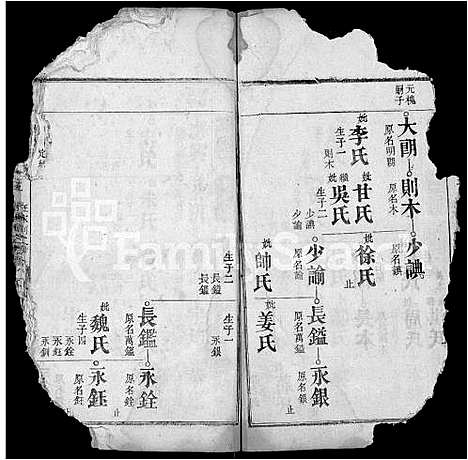 元槐
嗣子
大朗
原名明朗
則木
原名木
少謨
妣李氏
生子一
則木
妣甘氏
繼妣吳氏
生子二
少謨
少諭
妣徐氏
止
少諭
原名諭
妣帥氏
生子二
長鑑
長鎰
長鎰
原名萬鎰
妣姜氏
生子一
永銀
永銀
原名銀
止
長鑑
原名萬鑑
妣魏氏
生子四
永銓
永鈺
永銓
原名銓
止
永鈺
原名鈺
止
FamilySearch